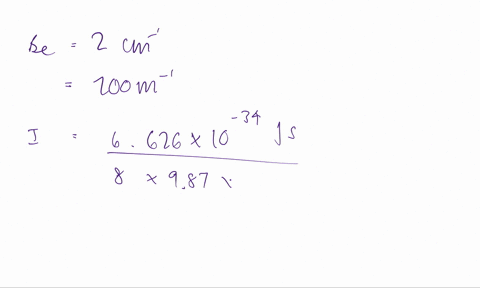 Be = 2 cm⁻¹
= 200 m⁻¹
I = 6.626 × 10⁻³⁴ Js
8 × 9.87 ×